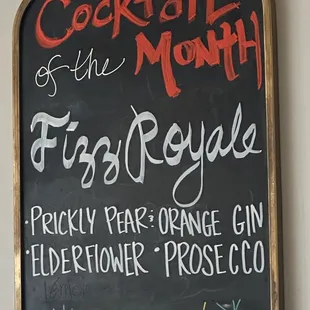 COCKTAIL
of the MONTH
Fizz Royale
·PRICKLY PEAR & ORANGE GIN
·ELDERFLOWER ·PROSECCO